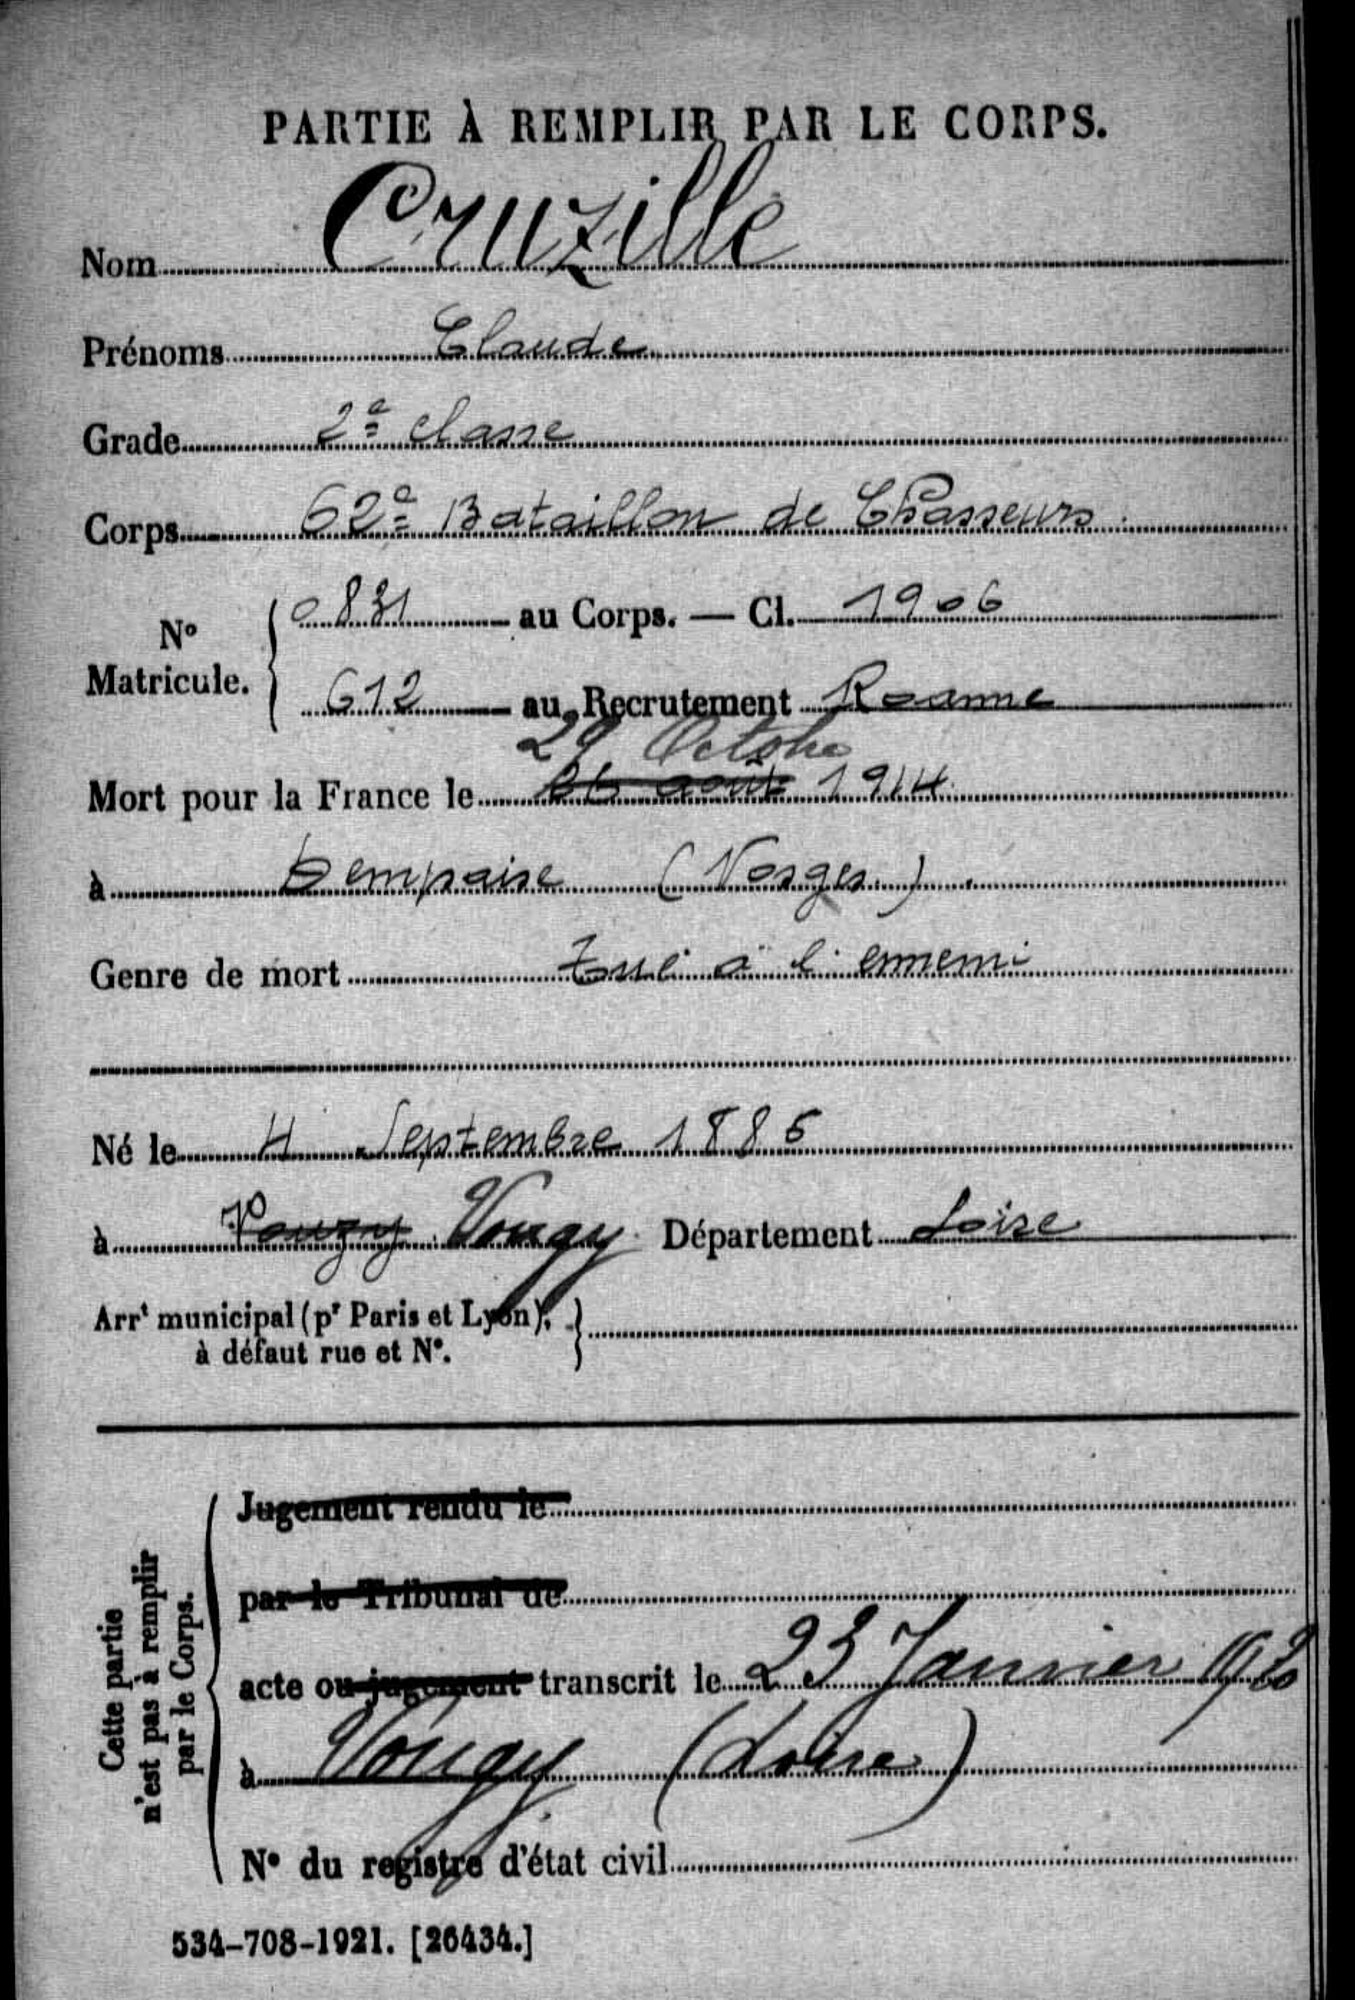 PARTIE À REMPLIR PAR LE CORPS.
Nom Cruzille
Prénoms Claude
Grade 2e classe
Corps 62e Bataillon de Chasseurs
No Matricule. { 0831 au Corps. — Cl. 1906
612 au Recrutement Roanne
29 Octobre
Mort pour la France le 26 août 1914
à Sempaire (Vosges).
Genre de mort Tué à l'ennemi
Né le 4 Septembre 1886
à Pouzy Vougy Département Loire
Arrt municipal (pr Paris et Lyon), }
à défaut rue et No.
Cette partie n'est pas à remplir par le Corps.
Jugement rendu le
par le Tribunal de
acte ou jugement transcrit le 23 Janvier 1920
à Vougy (Loire)
No du registre d'état civil
534-708-1921. [26434.]